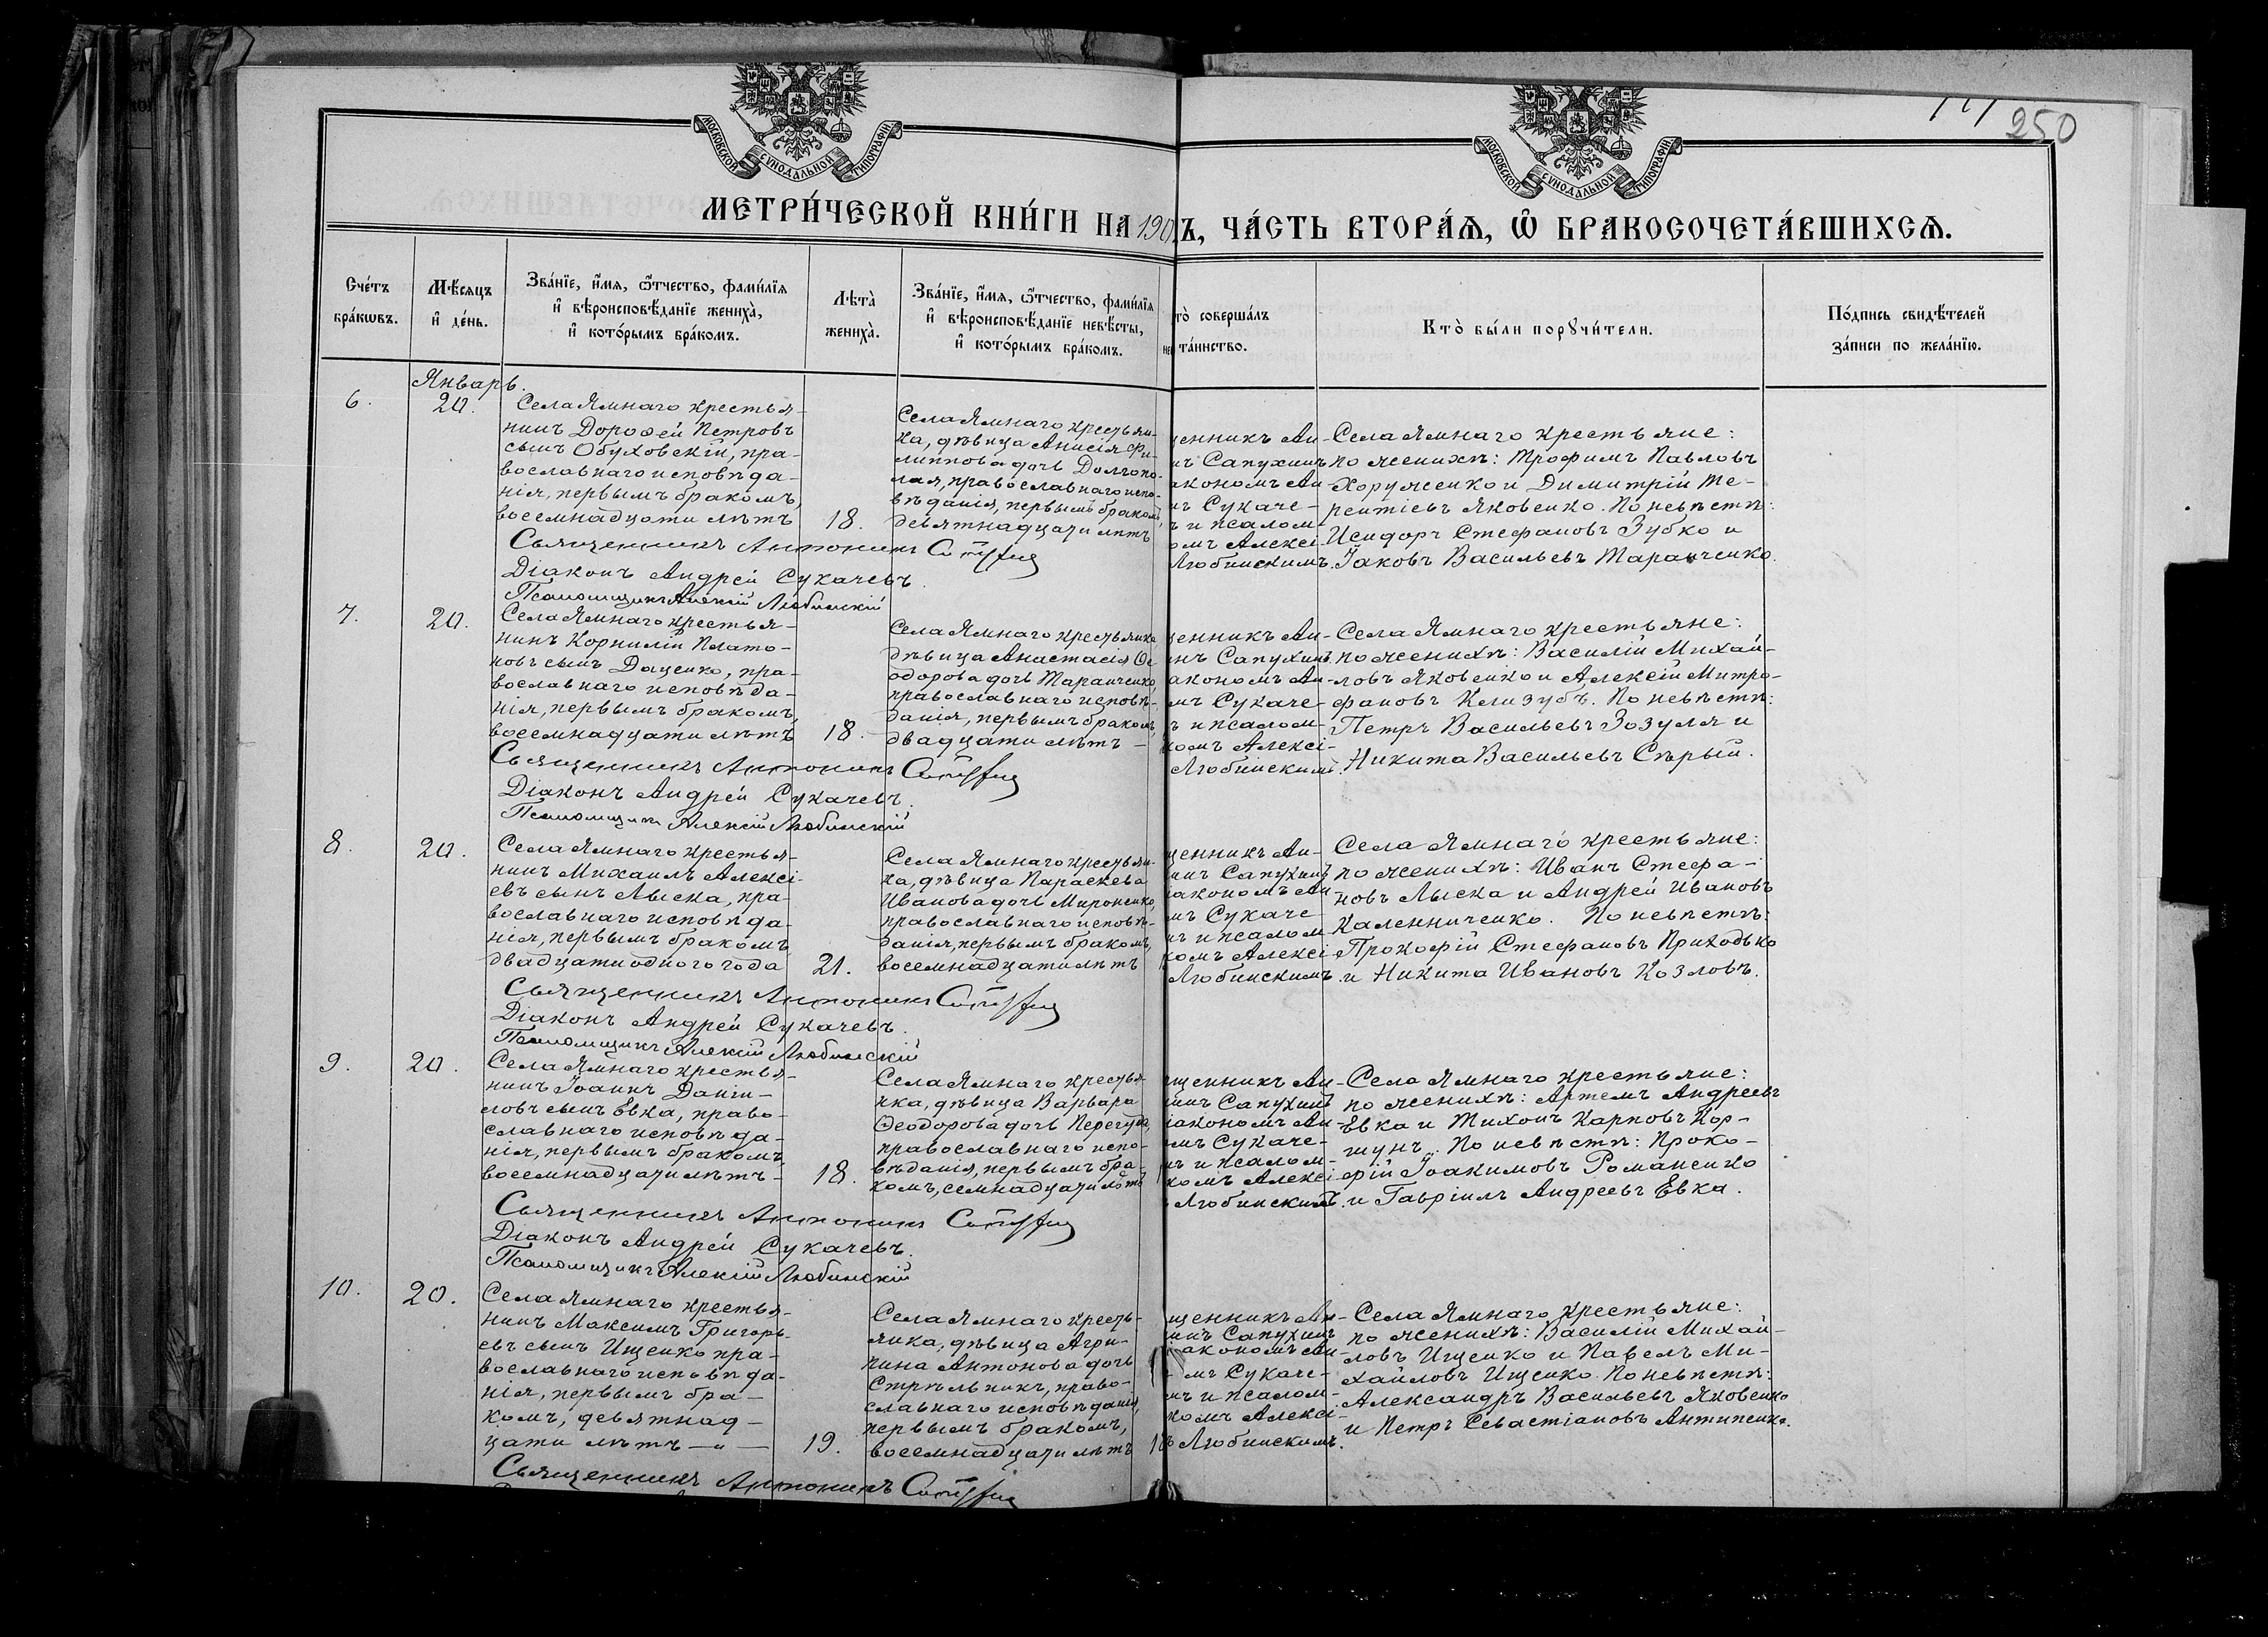 250
МОСКОВСКОЙ СУНОДАЛЬНОЙ ТИПОГРАФІИ
МОСКОВСКОЙ СУНОДАЛЬНОЙ ТИПОГРАФІИ
МЕТРИ́ЧЕСКОЙ КНИ́ГИ НА 190
Ъ, ЧА́СТЬ ВТОРА́Ѧ, Ѡ҆ БРАКОСОЧЕТА́ВШИХСѦ.
Сче́тъ
бра́кѡвъ.
Мѣ́сѧцъ
и҆ де́нь.
Зва́нїе, и҆́мѧ, ѻ҆́тчество, фами́лїѧ
и҆ вѣроисповѣ́данїе жениха̀,
и҆ кото́рымъ бра́комъ.
Лѣта̀
жениха̀.
Зва́нїе, и҆́мѧ, ѻ҆́тчество, фами́лїѧ
и҆ вѣроисповѣ́данїе невѣ́сты,
и҆ кото́рымъ бра́комъ.
то̀ соверша́лъ
та́инство.
Кто̀ бы́ли порꙋчи́тели.
По́дпись свидѣ́телей
за́писи по жела́нїю.
Январь.
6.
20.
Села Ямнаго крестья-
нинъ Дороѳей Петровъ
сынъ Обуховскій, пра-
вославнаго исповѣда-
нія, первымъ бракомъ,
восемнадцати лѣтъ
18.
Села Ямнаго крестьян-
ка, дѣвица Анисія Фи-
липпова дочь Долгопо-
лая, православнаго испо-
вѣданія, первымъ бракомъ,
девятнадцати лѣтъ
щенникъ Ан-
нъ Сапухинъ
акономъ Ан-
мъ Сукаче-
ъ и псалом-
омъ Алексі-
Любинскимъ.
Села Ямнаго крестьяне:
по женихѣ: Трофимъ Павловъ
Хоруженко и Димитрій Те-
рентіевъ Яковенко. По невѣстѣ:
Исидоръ Стефановъ Зубко и
Іаковъ Васильевъ Таранченко.
Священникъ Антонинъ
Діаконъ Андрей Сукачевъ.
Псаломщикъ Алексій Любинскій
7.
20.
Села Ямнаго крестья-
нинъ Корнилій Плато-
новъ сынъ Даценко, пра-
вославнаго исповѣда-
нія, первымъ бракомъ,
восемнадцати лѣтъ
18.
Села Ямнаго крестьянка
дѣвица Анастасія Ѳе
одорова дочь Таранченко,
православнаго исповѣ-
данія, первымъ бракомъ,
двадцати лѣтъ —
щенникъ Ан-
нъ Сапухинъ
акономъ Ан-
мъ Сукаче-
ъ и псалом-
комъ Алексі-
Любинскимъ.
Села Ямнаго крестьяне:
по женихѣ: Василій Михай-
ловъ Яковенко и Алексій Митро-
фановъ Клизубъ. По невѣстѣ:
Петръ Васильевъ Зозуля и
Никита Васильевъ Сѣрый.
Священникъ Антонинъ
Діаконъ Андрей Сукачевъ.
Псаломщикъ Алексій Любинскій
8.
20.
Села Ямнаго крестья-
нинъ Михаилъ Алексі-
евъ сынъ Лыска, пра-
вославнаго исповѣда-
нія, первымъ бракомъ,
двадцати одного года
21.
Села Ямнаго крестьян-
ка, дѣвица Параскева
Иванова дочь Мироненко,
православнаго исповѣ-
данія, первымъ бракомъ,
восемнадцати лѣтъ
щенникъ Ан-
инъ Сапухинъ
іакономъ Ан
мъ Сукаче
ъ и псалом
комъ Алексі
Любинскимъ.
Села Ямнаго крестьяне:
по женихѣ: Иванъ Стефа-
новъ Лыска и Андрей Ивановъ
Каленниченко. По невѣстѣ:
Прокофій Стефановъ Приходько
и Никита Ивановъ Козловъ.
Священникъ Антонинъ
Діаконъ Андрей Сукачевъ.
Псаломщикъ Алексій Любинскій
9.
20.
Села Ямнаго крестья-
нинъ Іоаннъ Даніи-
ловъ сынъ Евка, право-
славнаго исповѣда-
нія, первымъ бракомъ,
восемнадцати лѣтъ
18.
Села Ямнаго крестья-
нка, дѣвица Варвара
Ѳеодорова дочь Перегуда,
православнаго испо-
вѣданія, первымъ бра-
комъ, семнадцати лѣтъ
щенникъ Ан-
инъ Сапухинъ
іакономъ Ан-
мъ Сукаче-
ъ и псалом-
комъ Алексі
Любинскимъ.
Села Ямнаго крестьяне:
по женихѣ: Артемъ Андреевъ
Евка и Тихонъ Карповъ Кор-
шунъ. По невѣстѣ: Проко-
фій Іоакимовъ Романенко
и Гавріилъ Андреевъ Евка.
Священникъ Антонинъ
Діаконъ Андрей Сукачевъ.
Псаломщикъ Алексій Любинскій
10.
20.
Села Ямнаго крестья-
нинъ Максимъ Григорь-
евъ сынъ Ищенко пра-
вославнаго исповѣда-
нія, первымъ бра-
комъ, девятнад-
цати лѣтъ — „ —
19.
Села Ямнаго кресть-
янка, дѣвица Агри-
пина Антонова дочь
Стрѣльникъ, право-
славнаго исповѣданія,
первымъ бракомъ,
восемнадцати лѣтъ
щенникъ Ан-
инъ Сапухинъ
акономъ Ан-
мъ Сукаче-
ъ и псалом-
комъ Алексі-
Любинскимъ.
Села Ямнаго крестьяне:
по женихѣ: Василій Михай-
ловъ Ищенко и Павелъ Ми-
хайловъ Ищенко. По невѣстѣ:
Александръ Васильевъ Яковенко
и Петръ Севастіановъ Антипенко.
Священникъ Антонинъ